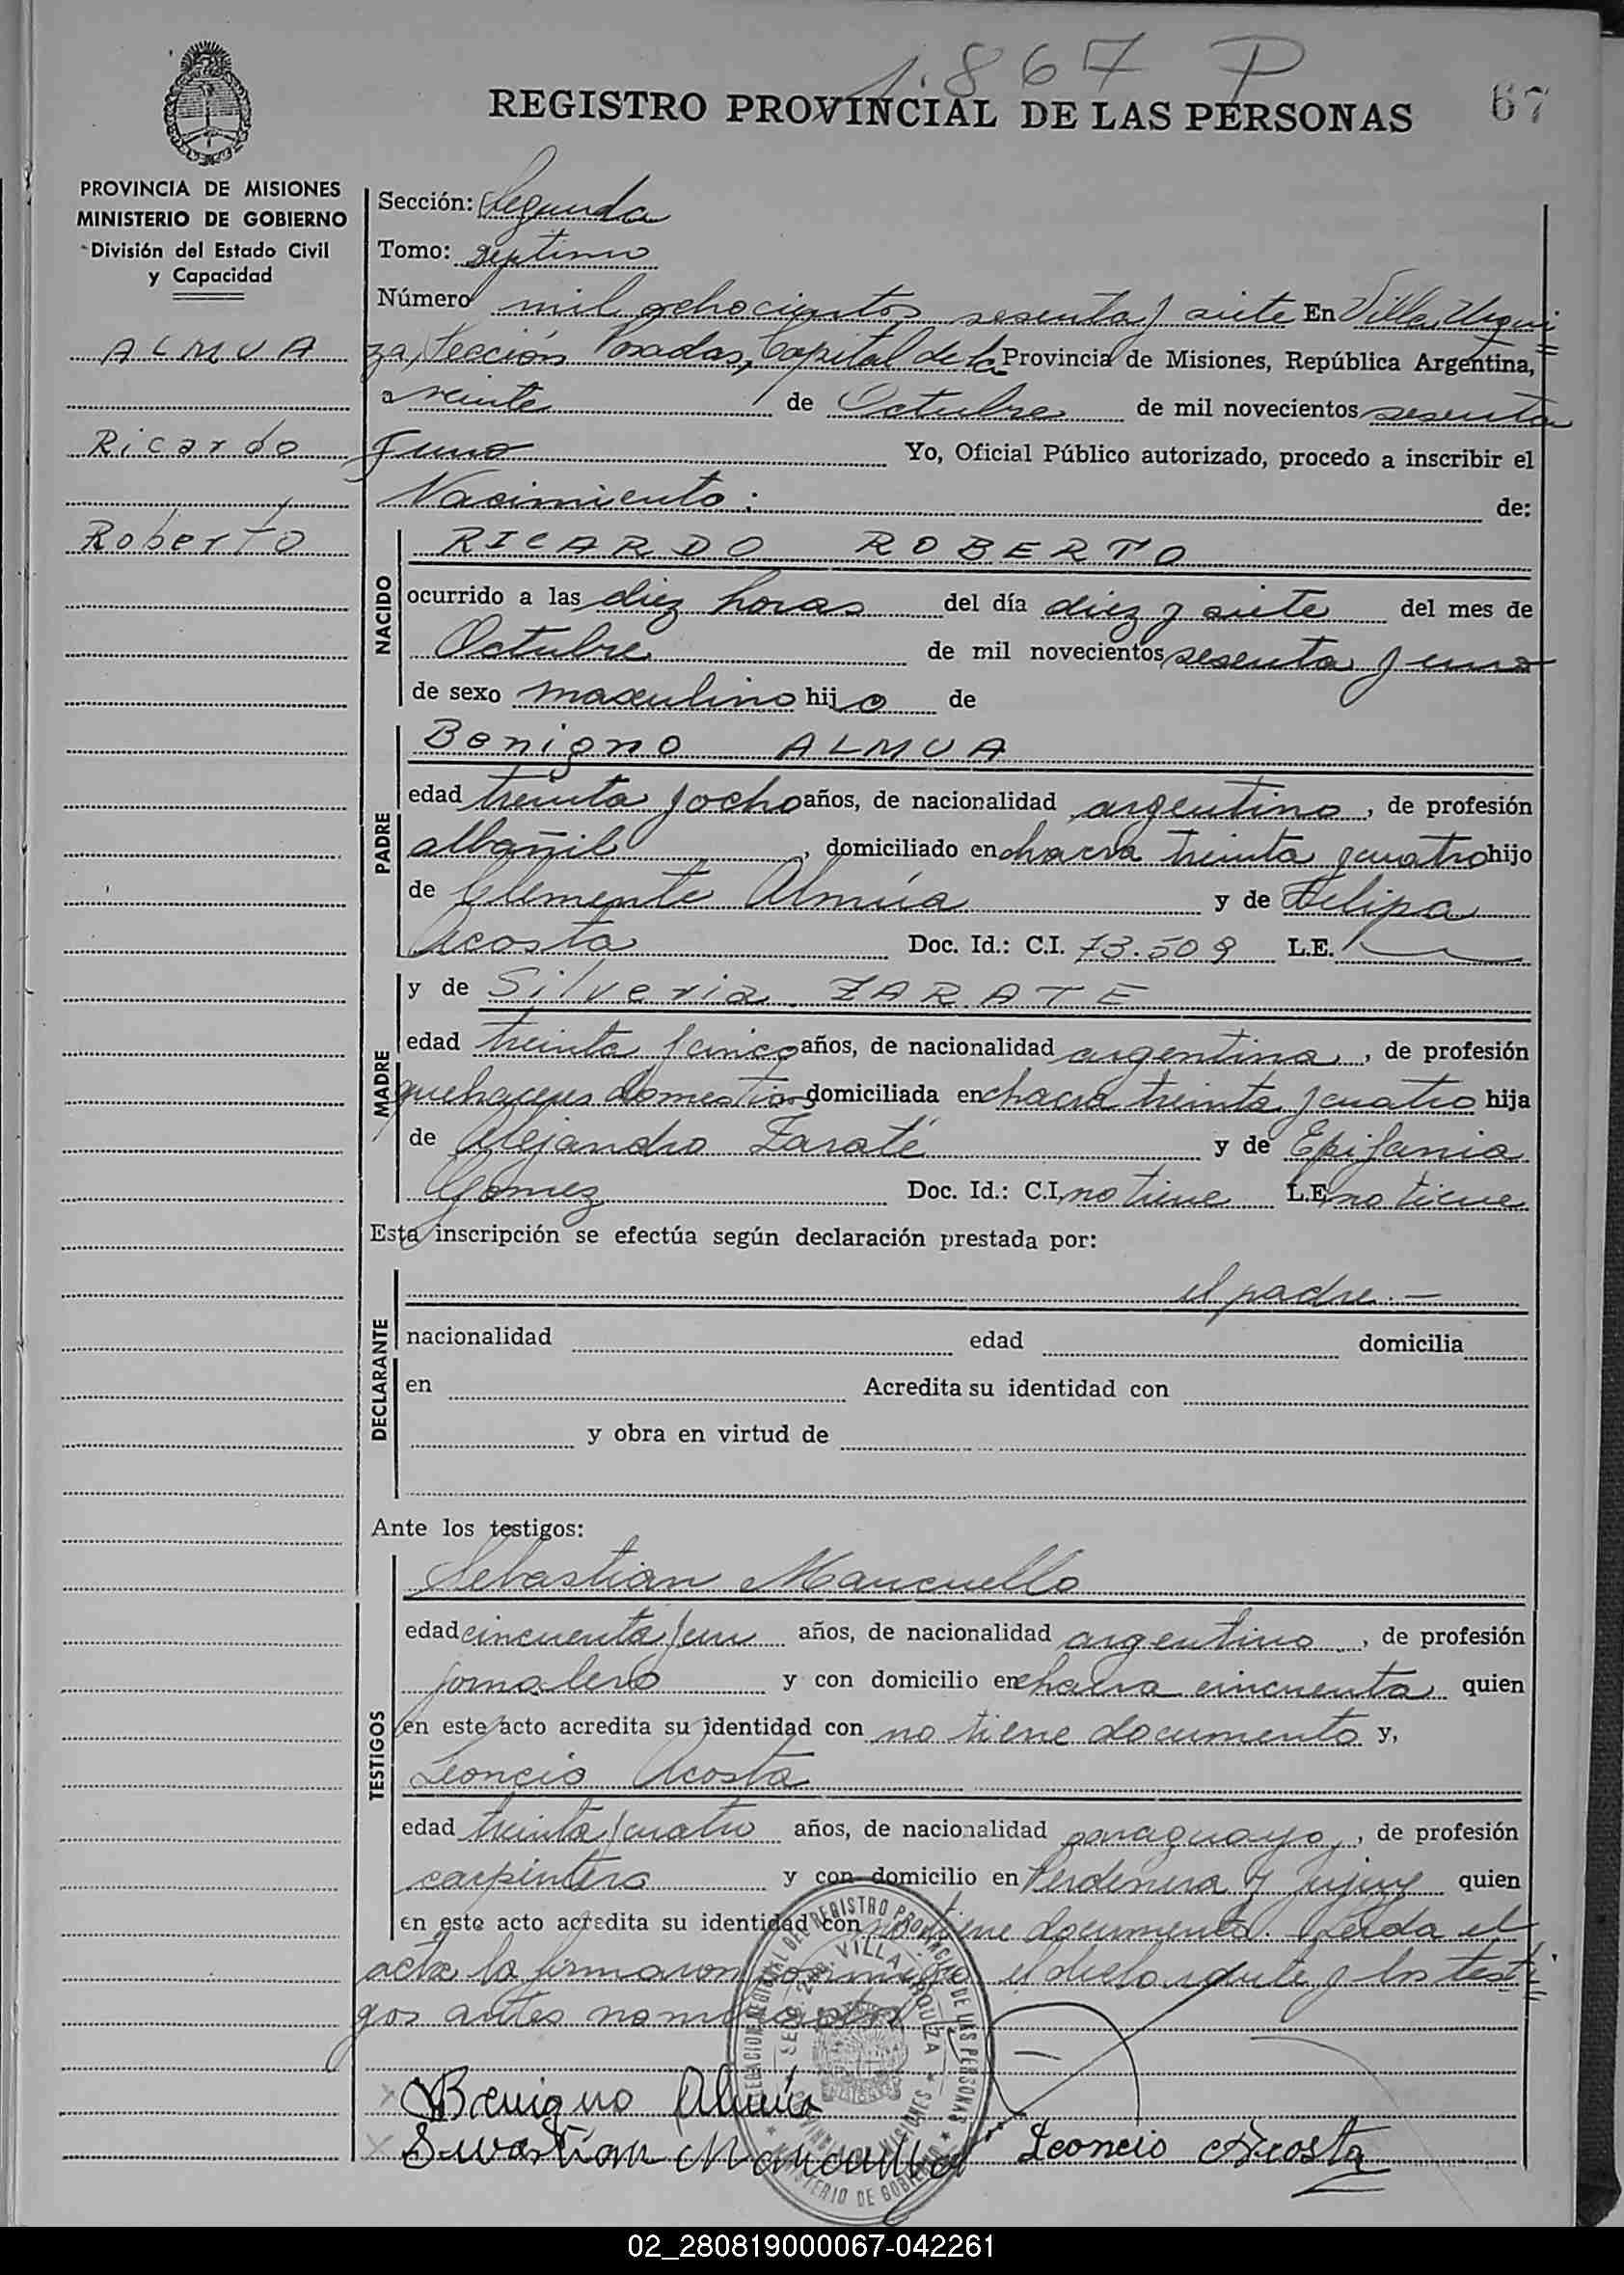 1.867 P
REGISTRO PROVINCIAL DE LAS PERSONAS 67
PROVINCIA DE MISIONES
MINISTERIO DE GOBIERNO
División del Estado Civil
y Capacidad
ALMUA
Ricardo
Roberto
Sección: Segunda
Tomo: Septimo
Número mil ochocientos sesenta y siete En Villa Urqui
za, Sección Posadas, Capital de la Provincia de Misiones, República Argentina,
a veinte de Octubre de mil novecientos sesenta
y uno Yo, Oficial Público autorizado, procedo a inscribir el
Nacimiento: de:
NACIDO
RICARDO ROBERTO
ocurrido a las diez horas del día diez y siete del mes de
Octubre de mil novecientos sesenta y uno
de sexo masculino hijo de
PADRE
Benigno ALMUA
edad treinta y ocho años, de nacionalidad argentino, de profesión
albañil, domiciliado en chacra treinta y cuatro hijo
de Clemente Almúa y de Felipa
Acosta Doc. Id.: C.I. 73.509 L.E.
MADRE
y de Silveria ZARATE
edad treinta y cinco años, de nacionalidad argentina, de profesión
quehaceres domestico domiciliada en chacra treinta y cuatro hija
de Alejandro Zaraté y de Epifania
Gomez Doc. Id.: C.I. no tiene L.E. no tiene
Esta inscripción se efectúa según declaración prestada por:
DECLARANTE
el padre.—
nacionalidad edad domicilia
en Acredita su identidad con
y obra en virtud de
Ante los testigos:
TESTIGOS
Sebastian Mancuello
edad cincuenta y un años, de nacionalidad argentino, de profesión
jornalero y con domicilio en chacra cincuenta quien
en este acto acredita su identidad con no tiene documento y,
Leoncio Acosta
edad treinta y cuatro años, de nacionalidad paraguayo, de profesión
carpintero y con domicilio en Perdenera y Jujuy quien
en este acto acredita su identidad con no tiene documento. Leida el
acta la firmaron conmigo el declarante y los testi
gos antes nombrados
DELEGACION REGIONAL DEL REGISTRO PROVINCIAL DE LAS PERSONAS
SEC. 2da. VILLA URQUIZA
PROVINCIA MISIONES
MINISTERIO DE GOBIERNO
Benigno Almúa
Sevastian Mancuello Leoncio Acosta
02_280819000067-042261